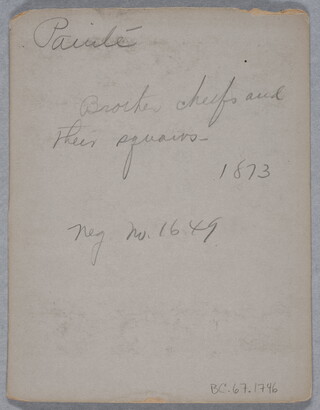 Paiute
Brother chiefs and
their squaws-
1873
Neg No. 1649
BC.67.1796